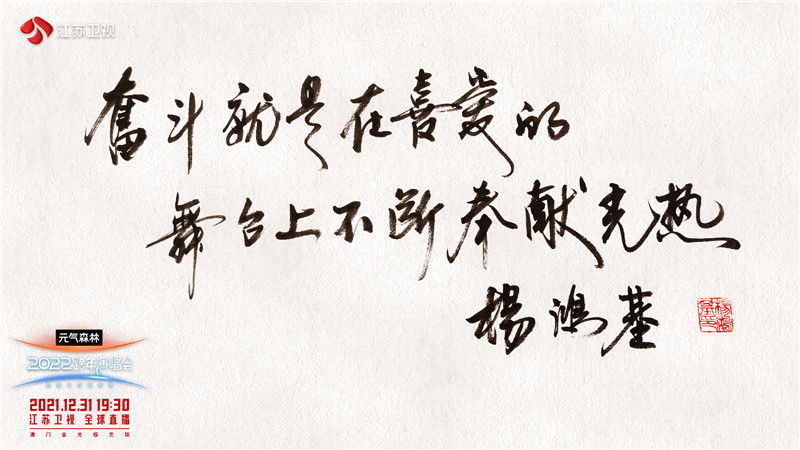 江苏卫视
奋斗就是在喜爱的
舞台上不断奉献光热
楊鸿基
元气森林
2022跨年演唱会
2021.12.31 19:30
江苏卫视 全球直播
澳门金光综艺馆